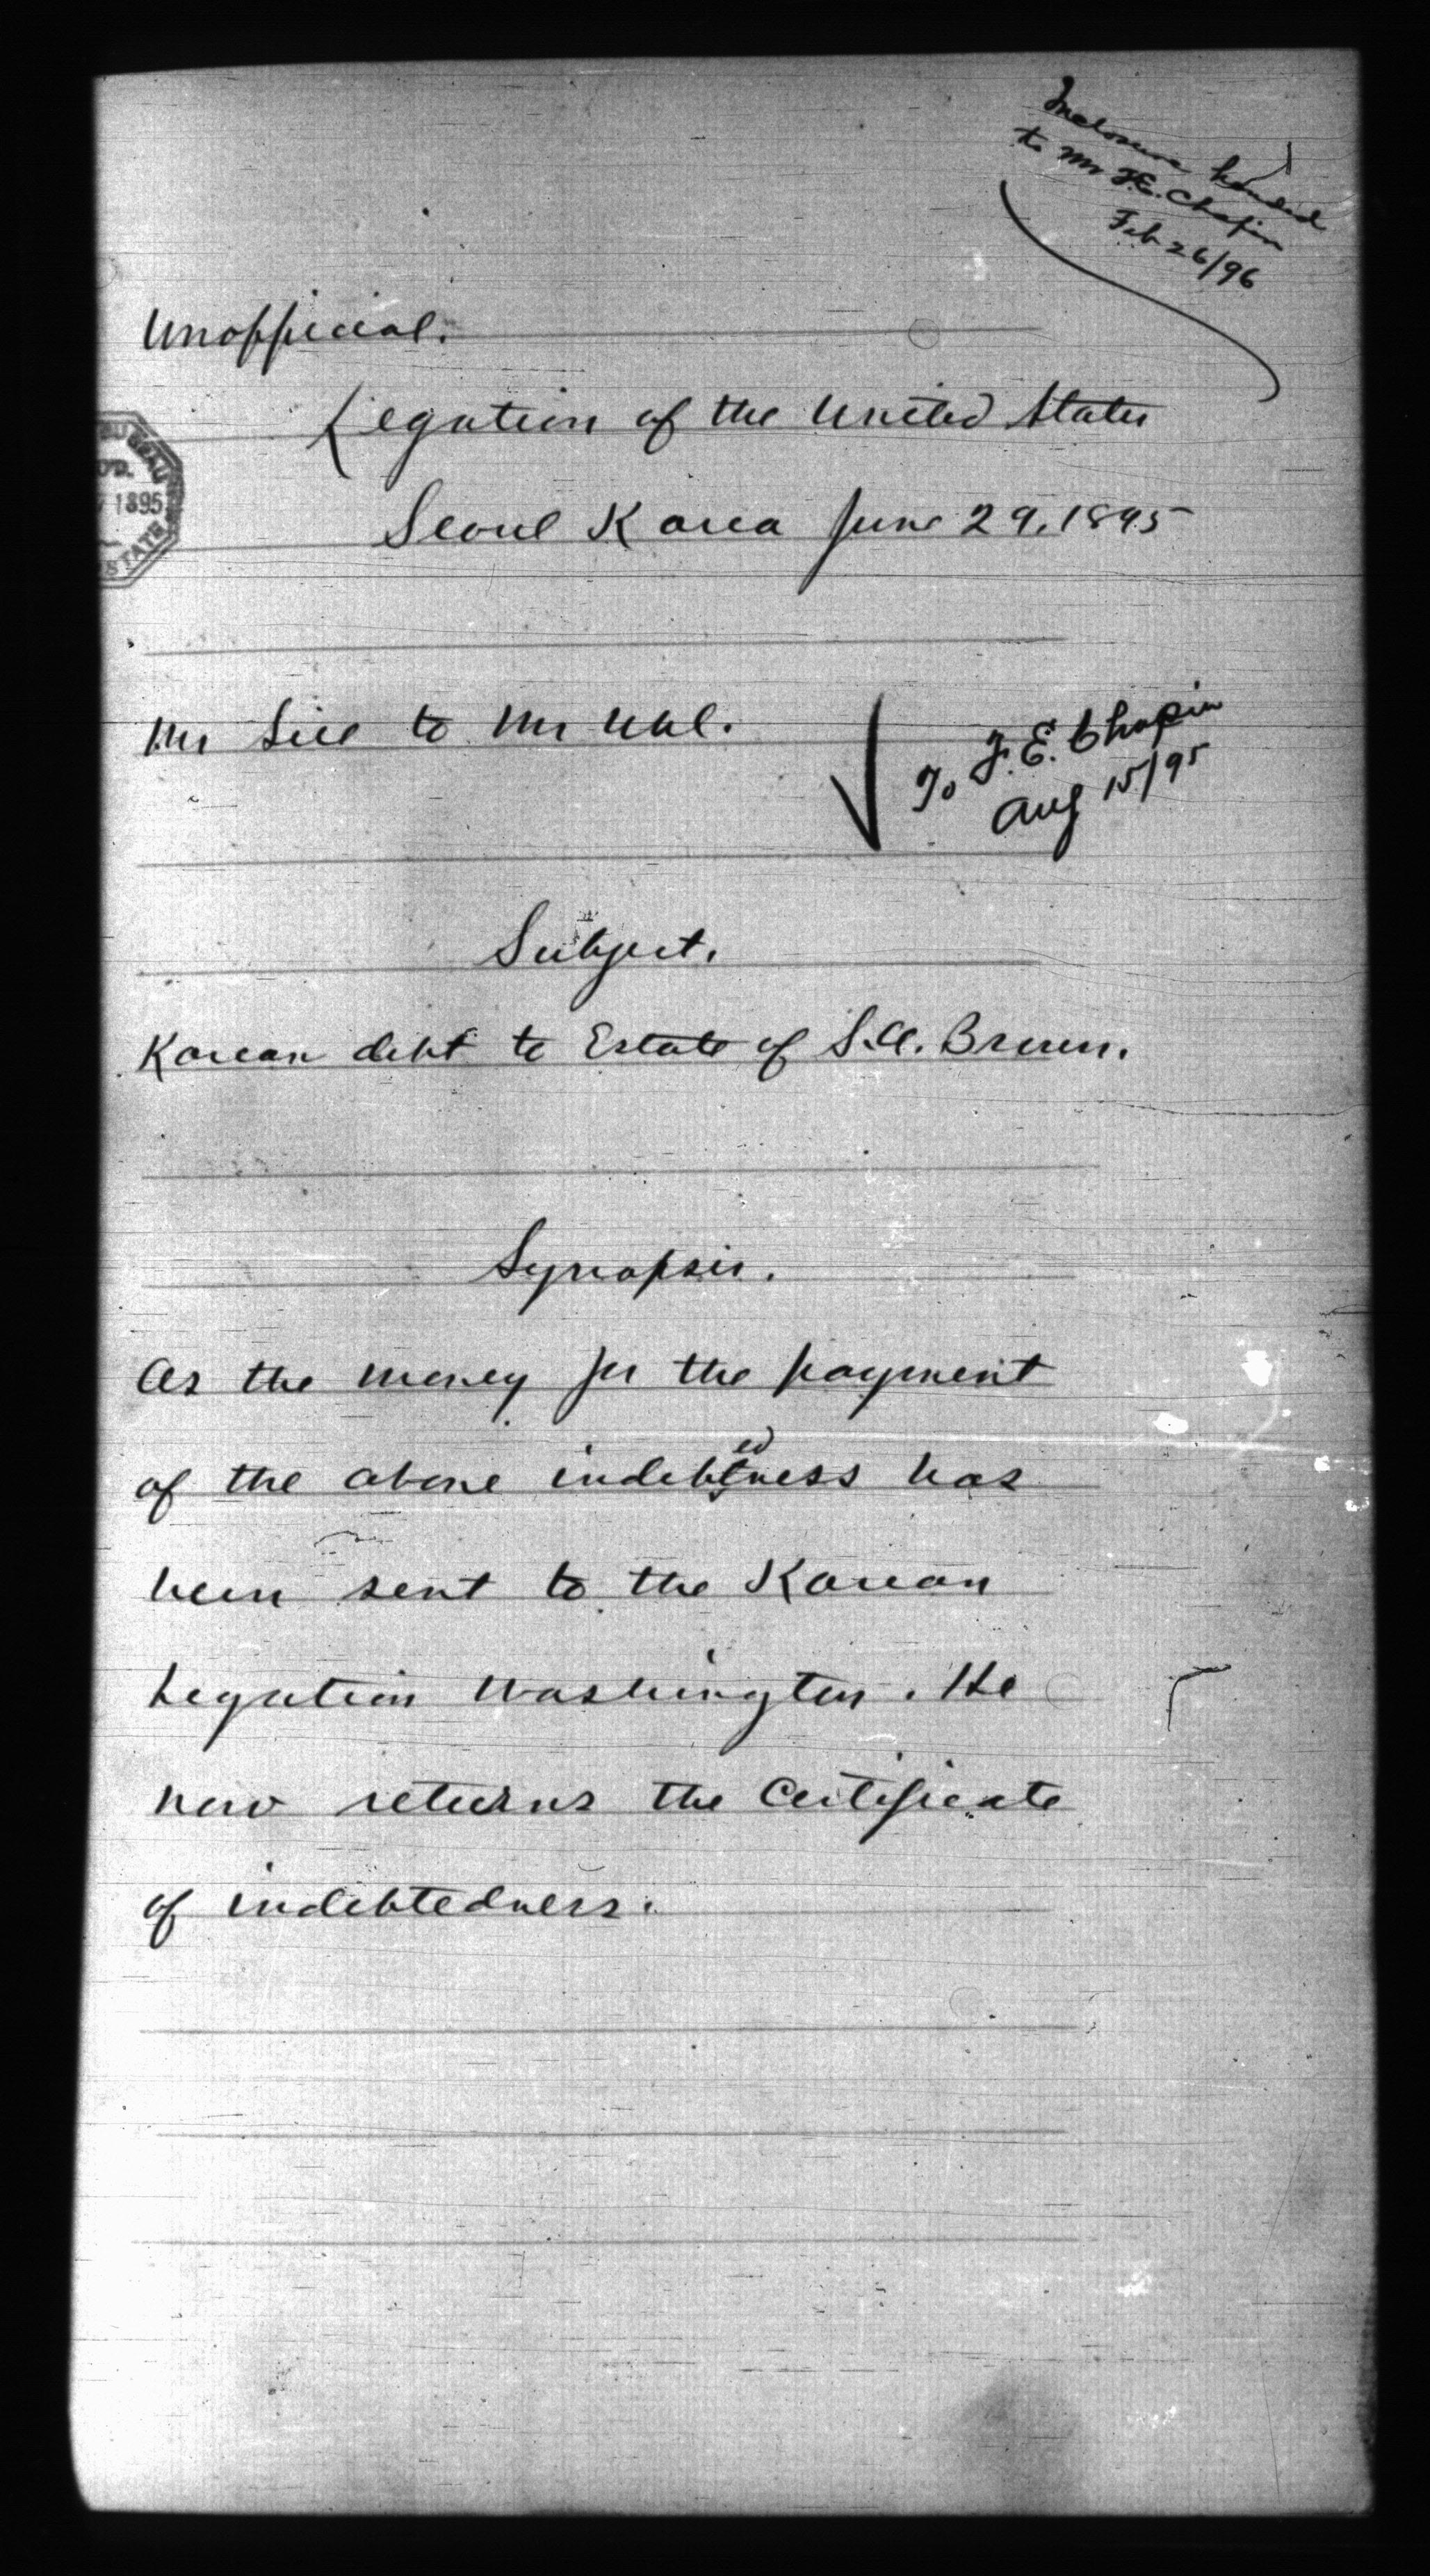 Inclosure handed
to Mr F.E. Chapin
Feb 26/96
Unofficial.
Legation of the United States
Seoul Korea June 29, 1895
1895
STATE
Mr Sill to Mr Uhl.
To F. E. Chapin
Aug 15/95
Subject.
Korean debt to Estate of S.A. Brown.
Synopsis.
As the money for the payment
of the above indebtedness has
been sent to the Korean
Legation Washington. He
now returns the Certificate
of indebtedness.